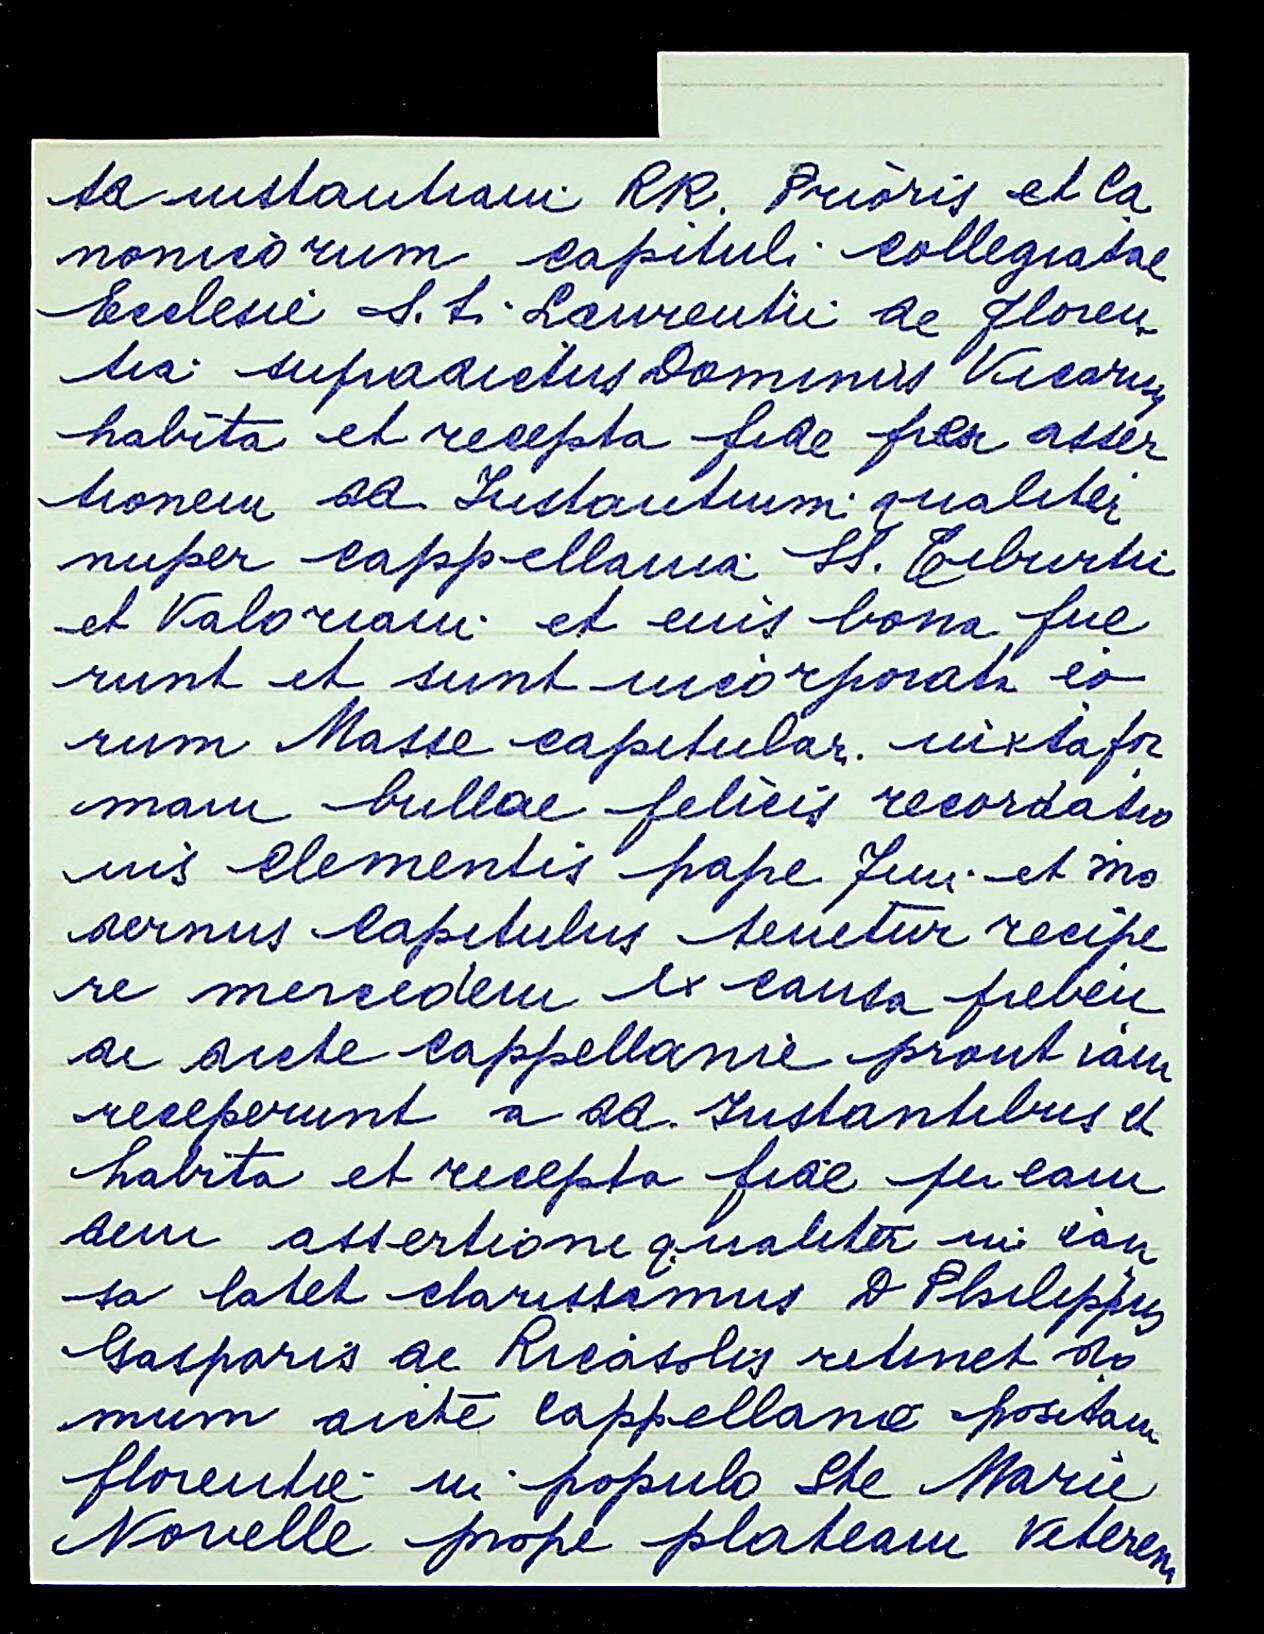 ta instantiam RR. Prioris et Ca
nonicorum capituli collegiatae
Ecclesie S.ti Laurentii de floren
tia supradictus Dominus Vicarius
habita et recepta fide per asser
tionem dd. Instantium qualiter
nuper cappellania SS. Tiburtii
et Valoriani et eius bona fue
runt et sunt incorporata eo
rum Masse capitular. iuxta for
mam bullae felicis recordatio
nis Clementis pape et mo
dernus Capitulus tenetur recipe
re mercedem ex causa preben
de dicte cappellanie prout iam
receperunt a dd. Instantibus et
habita et recepta fide per eam
dem assertione qualiter in cau
sa latet clarissimus D Philippus
Gasparis de Ricasolis retinet do
mum dicte Cappellanie positam
florentie in populo Ste Marie
Novelle prope plateam Veterem